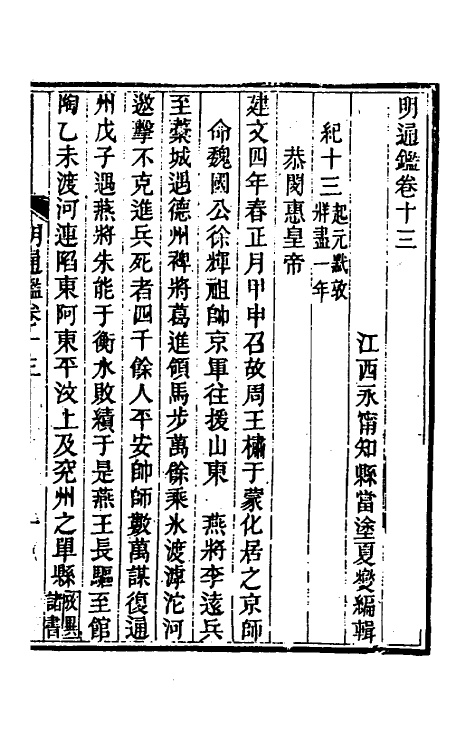 明通鑑卷十三
江西永甯知縣當塗夏燮編輯
紀十三起元黓敦
牂盡一年
恭閔惠皇帝
建文四年春正月甲申召故周王橚于蒙化居之京師
命魏國公徐輝祖帥京軍往援山東　燕將李遠兵
至藁城遇德州裨將葛進領馬步萬餘乘冰渡滹沱河
邀擊不克進兵死者四千餘人平安帥師數萬謀復通
州戊子遇燕將朱能于衡水敗績于是燕王長驅至館
陶乙未渡河連陷東阿東平汶上及兖州之單縣攷異
諸書
明通鑑卷十三
一